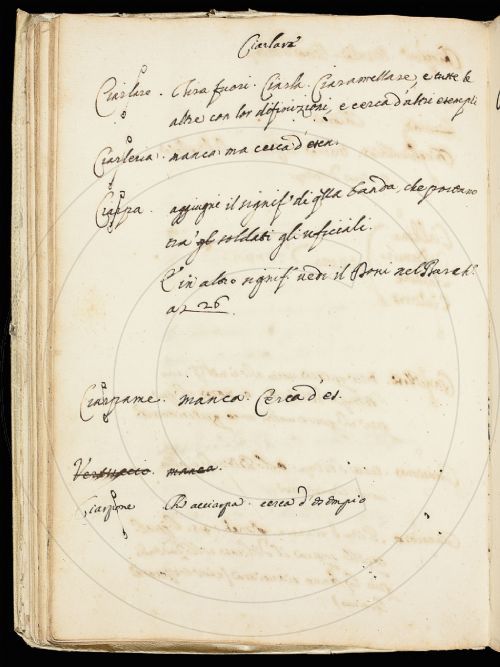 Ciarlare
Ciarlare. Tira fuori. Ciarla. Ciaramellare, e tutte le
altre con lor difinizioni, e cerca d'altri esempli
Ciarleria. manca ma cerca d'esem.
Ciarpa. aggiugne il signif.º di qlla banda, che portano
tra' gli soldati gli uficiali.
E' in altro signif.º vedi il Boni nel
a 26
Ciarpame. manca. Cerca d'es.
manca.
Ciarpione Ch' acciarpa. cerca d'esempio